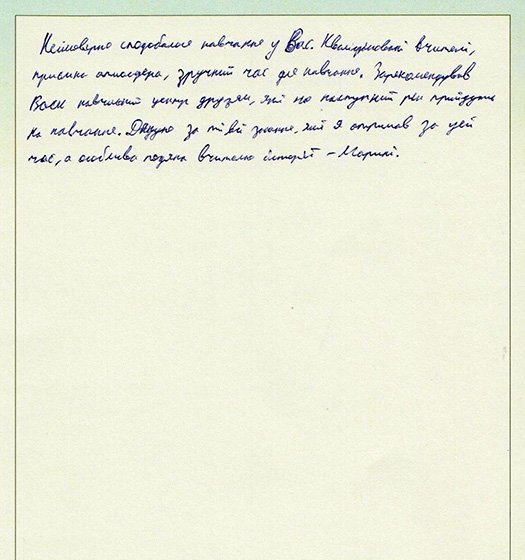 Неймоверно сподобалося навчання у Вас. Кваліфіковані вчителі,
приємна атмосфера, зручний час для навчання. Зарекомендував
Ваш навчальний центр друзям, які на наступний рік прийдуть
на навчання. Дякую за ті всі знання, які я отримав за цей
час, а особлива подяка вчителю історії – Марині.